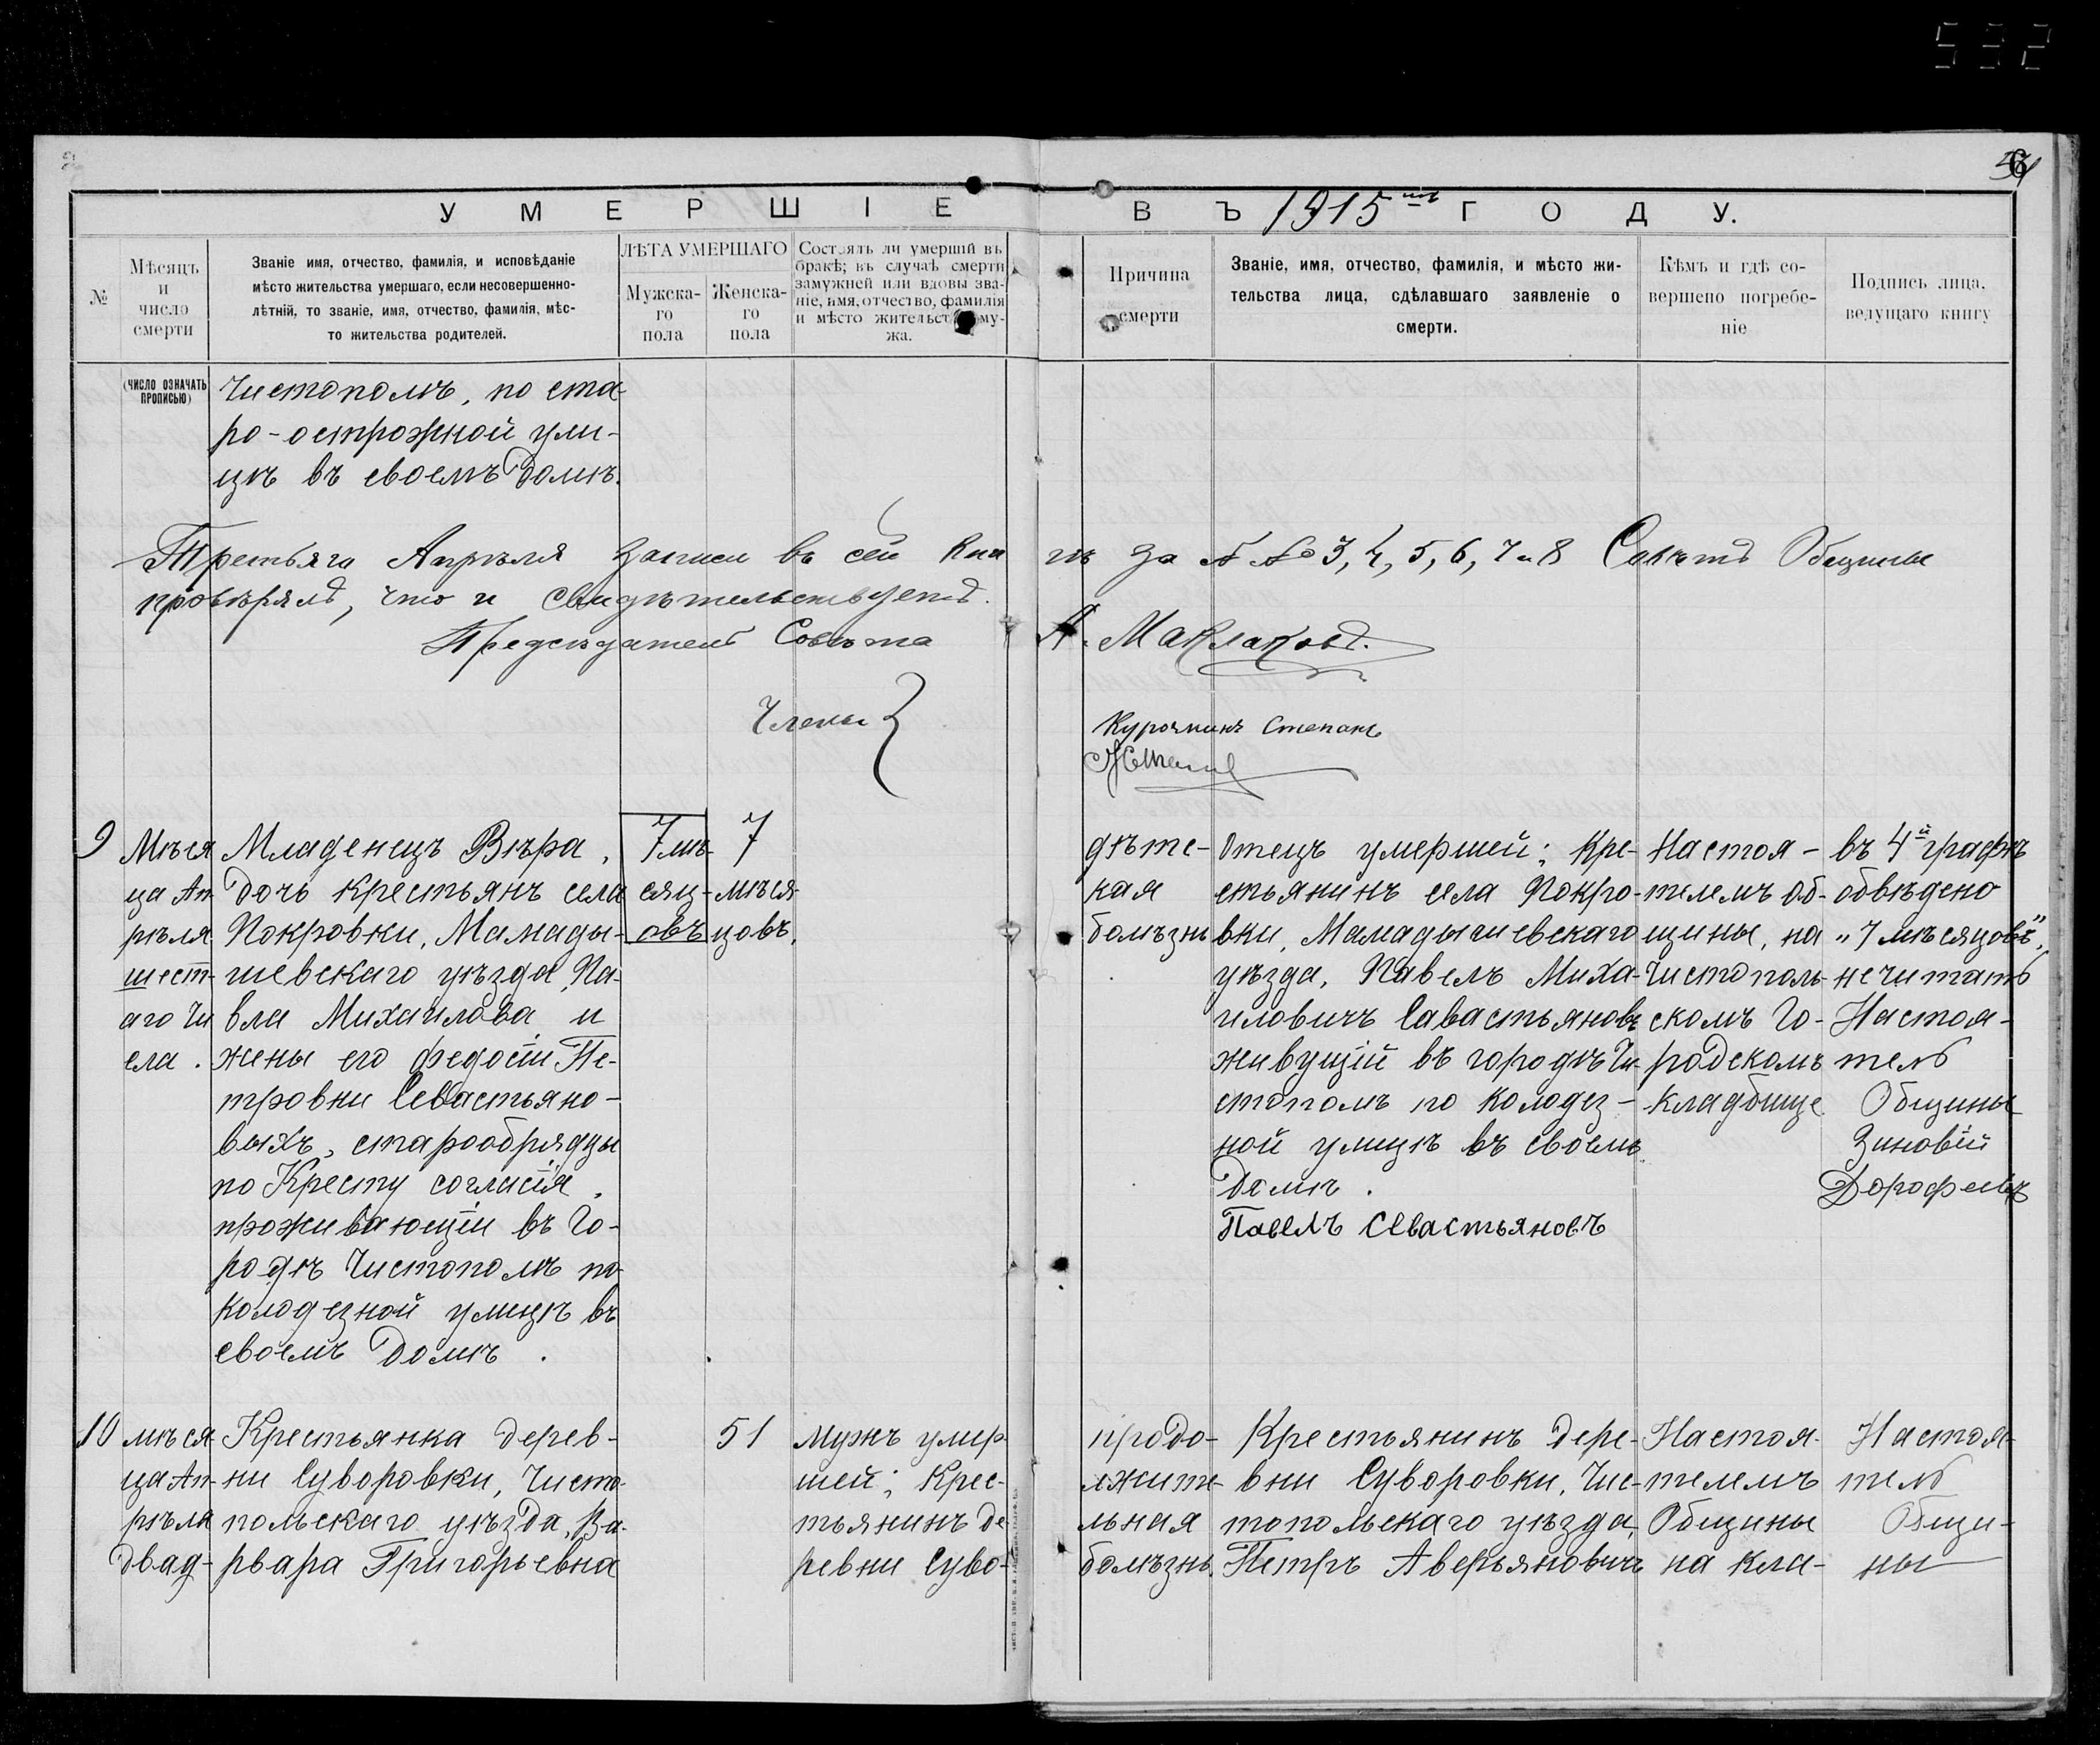 532
6
УМЕРШІЕ
ВЪ 1915мъ ГОДУ.
№
Мѣсяцъ
и
число
смерти
Званіе имя, отчество, фамилія, и исповѣданіе
мѣсто жительства умершаго, если несовершенно-
лѣтній, то званіе, имя, отчество, фамилія, мѣс-
то жительства родителей.
ЛѢТА УМЕРШАГО
Мужска-
го
пола
Женска-
го
пола
Состоялъ ли умершій въ
бракѣ; въ случаѣ смерти
замужней или вдовы зва-
ніе, имя, отчество, фамилія
и мѣсто жительст му-
жа.
Причина
смерти
Званіе, имя, отчество, фамилія, и мѣсто жи-
тельства лица, сдѣлавшаго заявленіе о
смерти.
Кѣмъ и гдѣ со-
вершено погребе-
ніе
Подпись лица,
ведущаго книгу
(ЧИСЛО ОЗНАЧАТЬ
ПРОПИСЬЮ)
Чистополѣ, по ста-
ро-острожной ули-
цѣ въ своемъ домѣ.
Третьяго Апрѣля записи въ сей кни
гѣ за №№ 3, 4, 5, 6, 7 и 8 Совѣтъ Общины
провѣрялъ, что и свидѣтельствуетъ.
Предсѣдатель Совѣта
А. Маклаковъ.
Члены
Курочкинъ Степанъ
9
Мѣся
ца Ап-
рѣля
шест-
аго чи
сла.
Младенецъ Вѣра,
дочь крестьянъ села
Покровки, Мамады-
шевскаго уѣзда, Па-
вла Михаилова и
жены его Федосіи Пе-
тровни Севастьяно-
выхъ, старообрядцы
по Кресту согласія,
проживающіи въ го-
родѣ Чистополѣ по
колодезной улицѣ въ
своемъ домѣ.
7 мѣ-
сяц-
овъ
7
мѣся-
цовъ.
дѣтс-
кая
болѣзнь
Отецъ умершей; кре-
стьянинъ села Покро-
вки, Мамадышевскаго
уѣзда, Павелъ Миха-
иловичъ Савастьяновъ
живущій въ городѣ Чи-
стополѣ по колодез-
ной улицѣ въ своемъ
домѣ.
Павелъ Севастьяновъ
Настоя-
телемъ об-
щины, на
Чистополь-
скомъ го-
родскомъ
кладбище
въ 4й графѣ
обвѣдено
„7 мѣсяцовъ",
не читать
Настоя-
тель
Общины
Зиновій
Дорофеевъ
10
мѣся-
ца Ап-
рѣля
двад-
Крестьянка дерев-
ни Суворовки, Чисто-
польскаго уѣзда, Ва-
рвара Григорьевна
51
Мужъ умер-
шей; крес-
тьянинъ де-
ревни Суво-
продо-
лжите-
льная
болѣзнь.
Крестьянинъ дере-
вни Суворовки, Чис-
топольскаго уѣзда,
Петръ Аверьяновичъ
Настоя-
телемъ
Общины
на кла-
Настоя-
тель
Общи-
ны